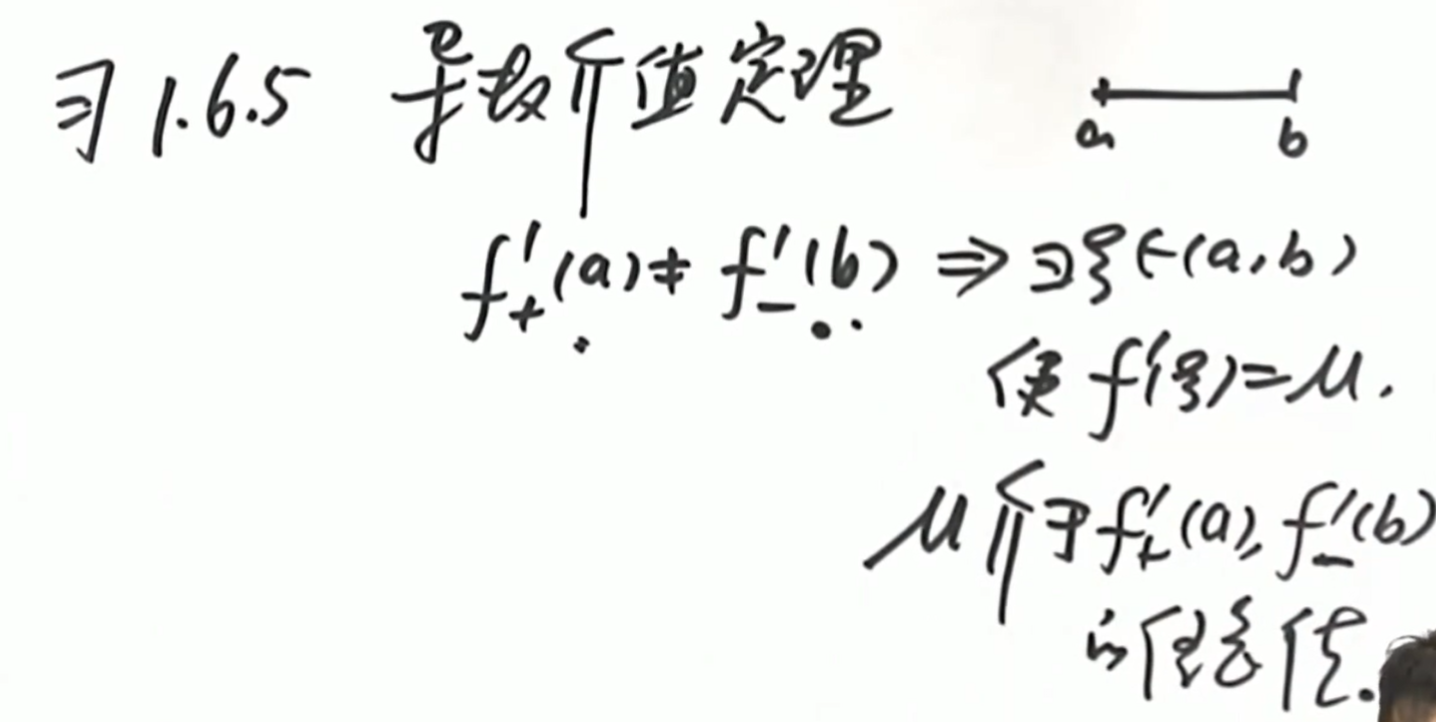 习 1.6.5 导数介值定理
a b
f'₊(a) ≠ f'₋(b) ⇒ ∃ξ∈(a,b)
使 f'(ξ)=μ.
μ介于f'₊(a),f'₋(b)
的任意值.